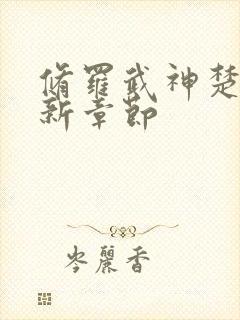 脩羅武神楚
新章節
岑麗香